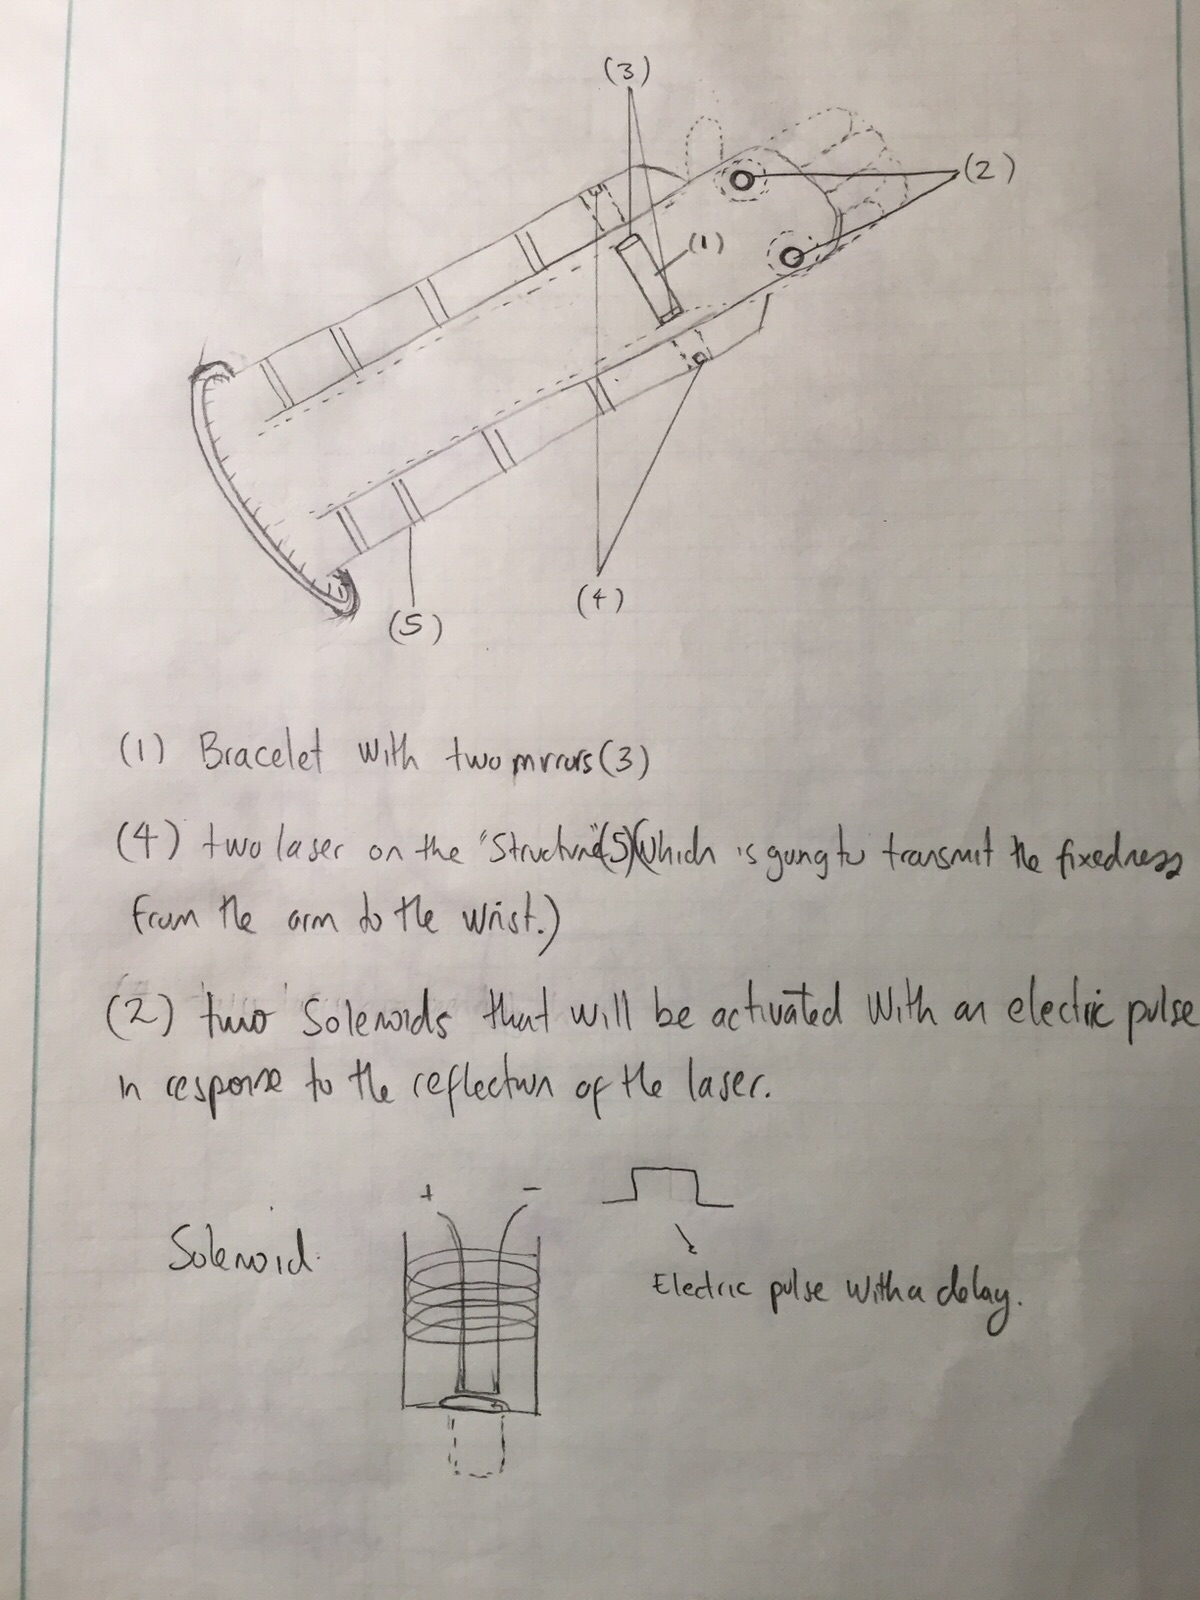 (3)
(2)
(1)
(4)
(5)
(1) Bracelet with two mirrors (3)
(4) two laser on the "Structure" (5) (which is going to transmit the fixedness
from the arm to the wrist.)
(2) two Solenoids that will be activated with an electric pulse
in response to the reflection of the laser.
+ -
Solenoid.
Electric pulse with a delay.